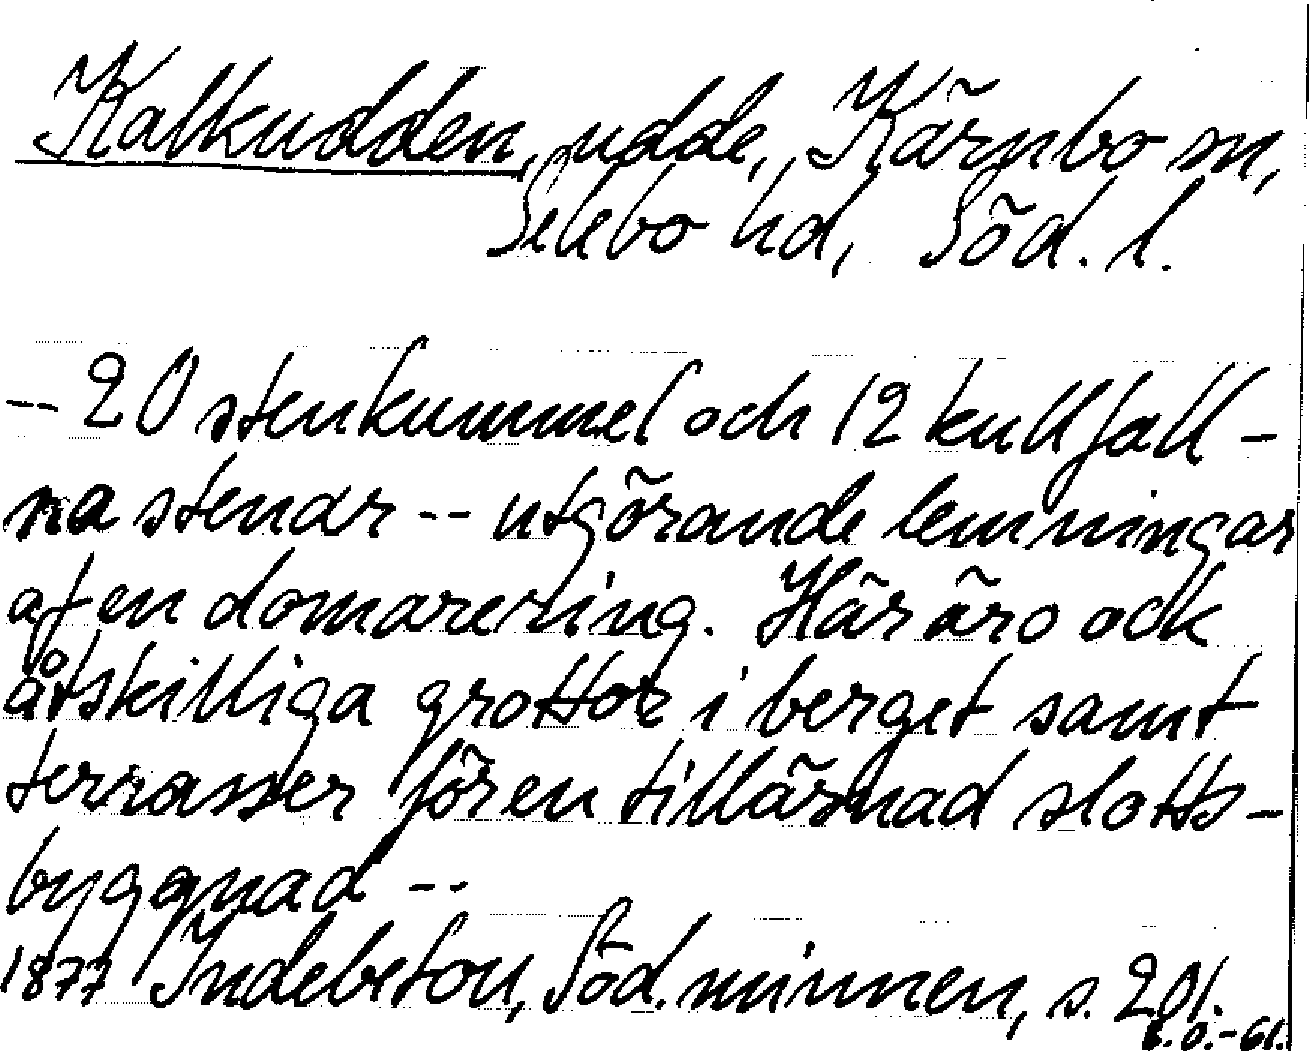 Kalkudden, udde, Kärnbo sn,
Selebo hd, Söd. l.
-- 20 stenkummel och 12 kullfall-
na stenar -- utgörande lemningar
af en domarering. Här äro ock
åtskilliga grottor i berget samt
terrasser för en tillärnad slotts-
byggnad --
1877 Indebetou, Söd. minnen, s. 201.
B.O.-61.